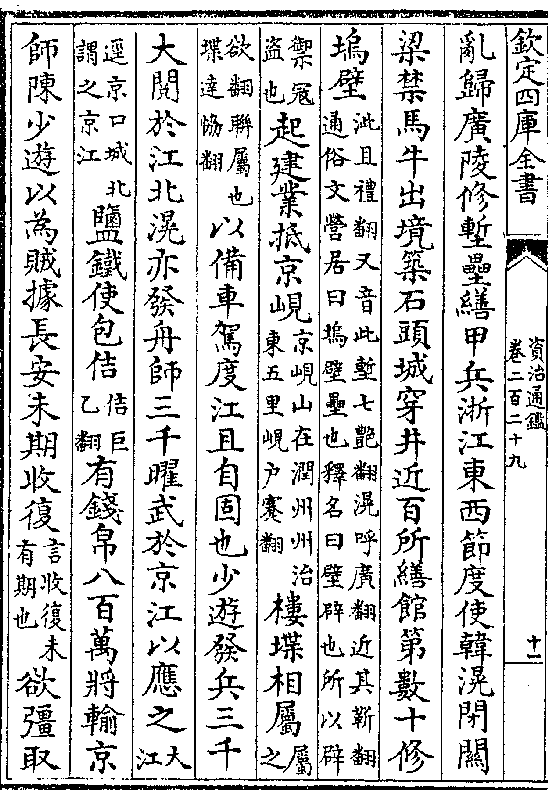 欽定四庫全書
資治通鑑
卷二百二十九
十一
亂歸廣陵修塹壘繕甲兵浙江東西節度使韓滉閉關
梁禁馬牛出境築石頭城穿井近百所繕館第數十修
塢壁泚且禮翻又音此塹七艷翻滉呼廣翻近其靳翻
通俗文營居曰塢壁壘也釋名曰壁辟也所以辟
禦寇
盜也起建業抵京峴京峴山在潤州州治
東五里峴戶蹇翻樓堞相屬屬之
欲翻聯屬也
堞達恊翻以備車駕度江且自固也少遊發兵三千
大閱於江北滉亦發舟師三千曜武於京江以應之大江
逕京口城北
謂之京江鹽鐵使包佶佶巨
乙翻有錢帛八百萬將輸京
師陳少遊以為賊據長安未期收復言收復未
有期也欲彊取